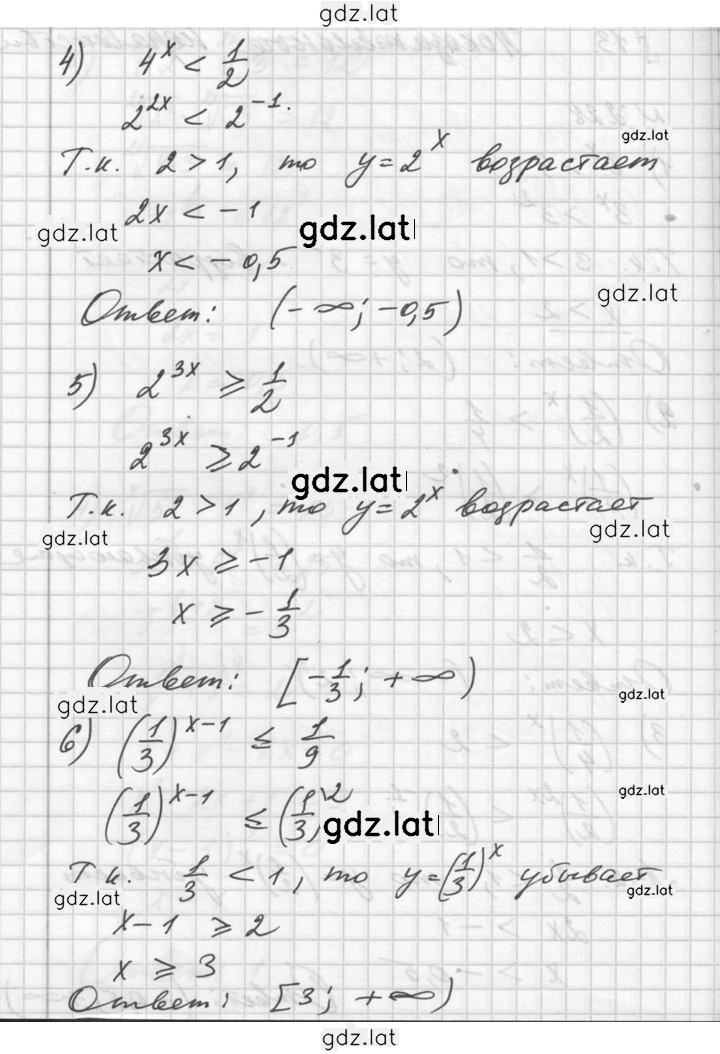 gdz.lat
4) 4^x < 1/2
2^{2x} < 2^{-1}.
gdz.lat
Т.к. 2 > 1, то y = 2^x возрастает
2x < -1
gdz.lat gdz.lat
x < -0,5
gdz.lat
Ответ: (-∞; -0,5)
5) 2^{3x} ⩾ 1/2
2^{3x} ⩾ 2^{-1}
gdz.lat
Т.к. 2 > 1, то y = 2^x возрастает
gdz.lat gdz.lat
3x ⩾ -1
x ⩾ -1/3
Ответ: [-1/3; +∞)
gdz.lat gdz.lat
6) (1/3)^{x-1} ≤ 1/9
gdz.lat
(1/3)^{x-1} ≤ (1/3)^2
gdz.lat
Т.к. 1/3 < 1, то y = (1/3)^x убывает
gdz.lat gdz.lat
x-1 ⩾ 2
x ⩾ 3
Ответ: [3; +∞)
gdz.lat